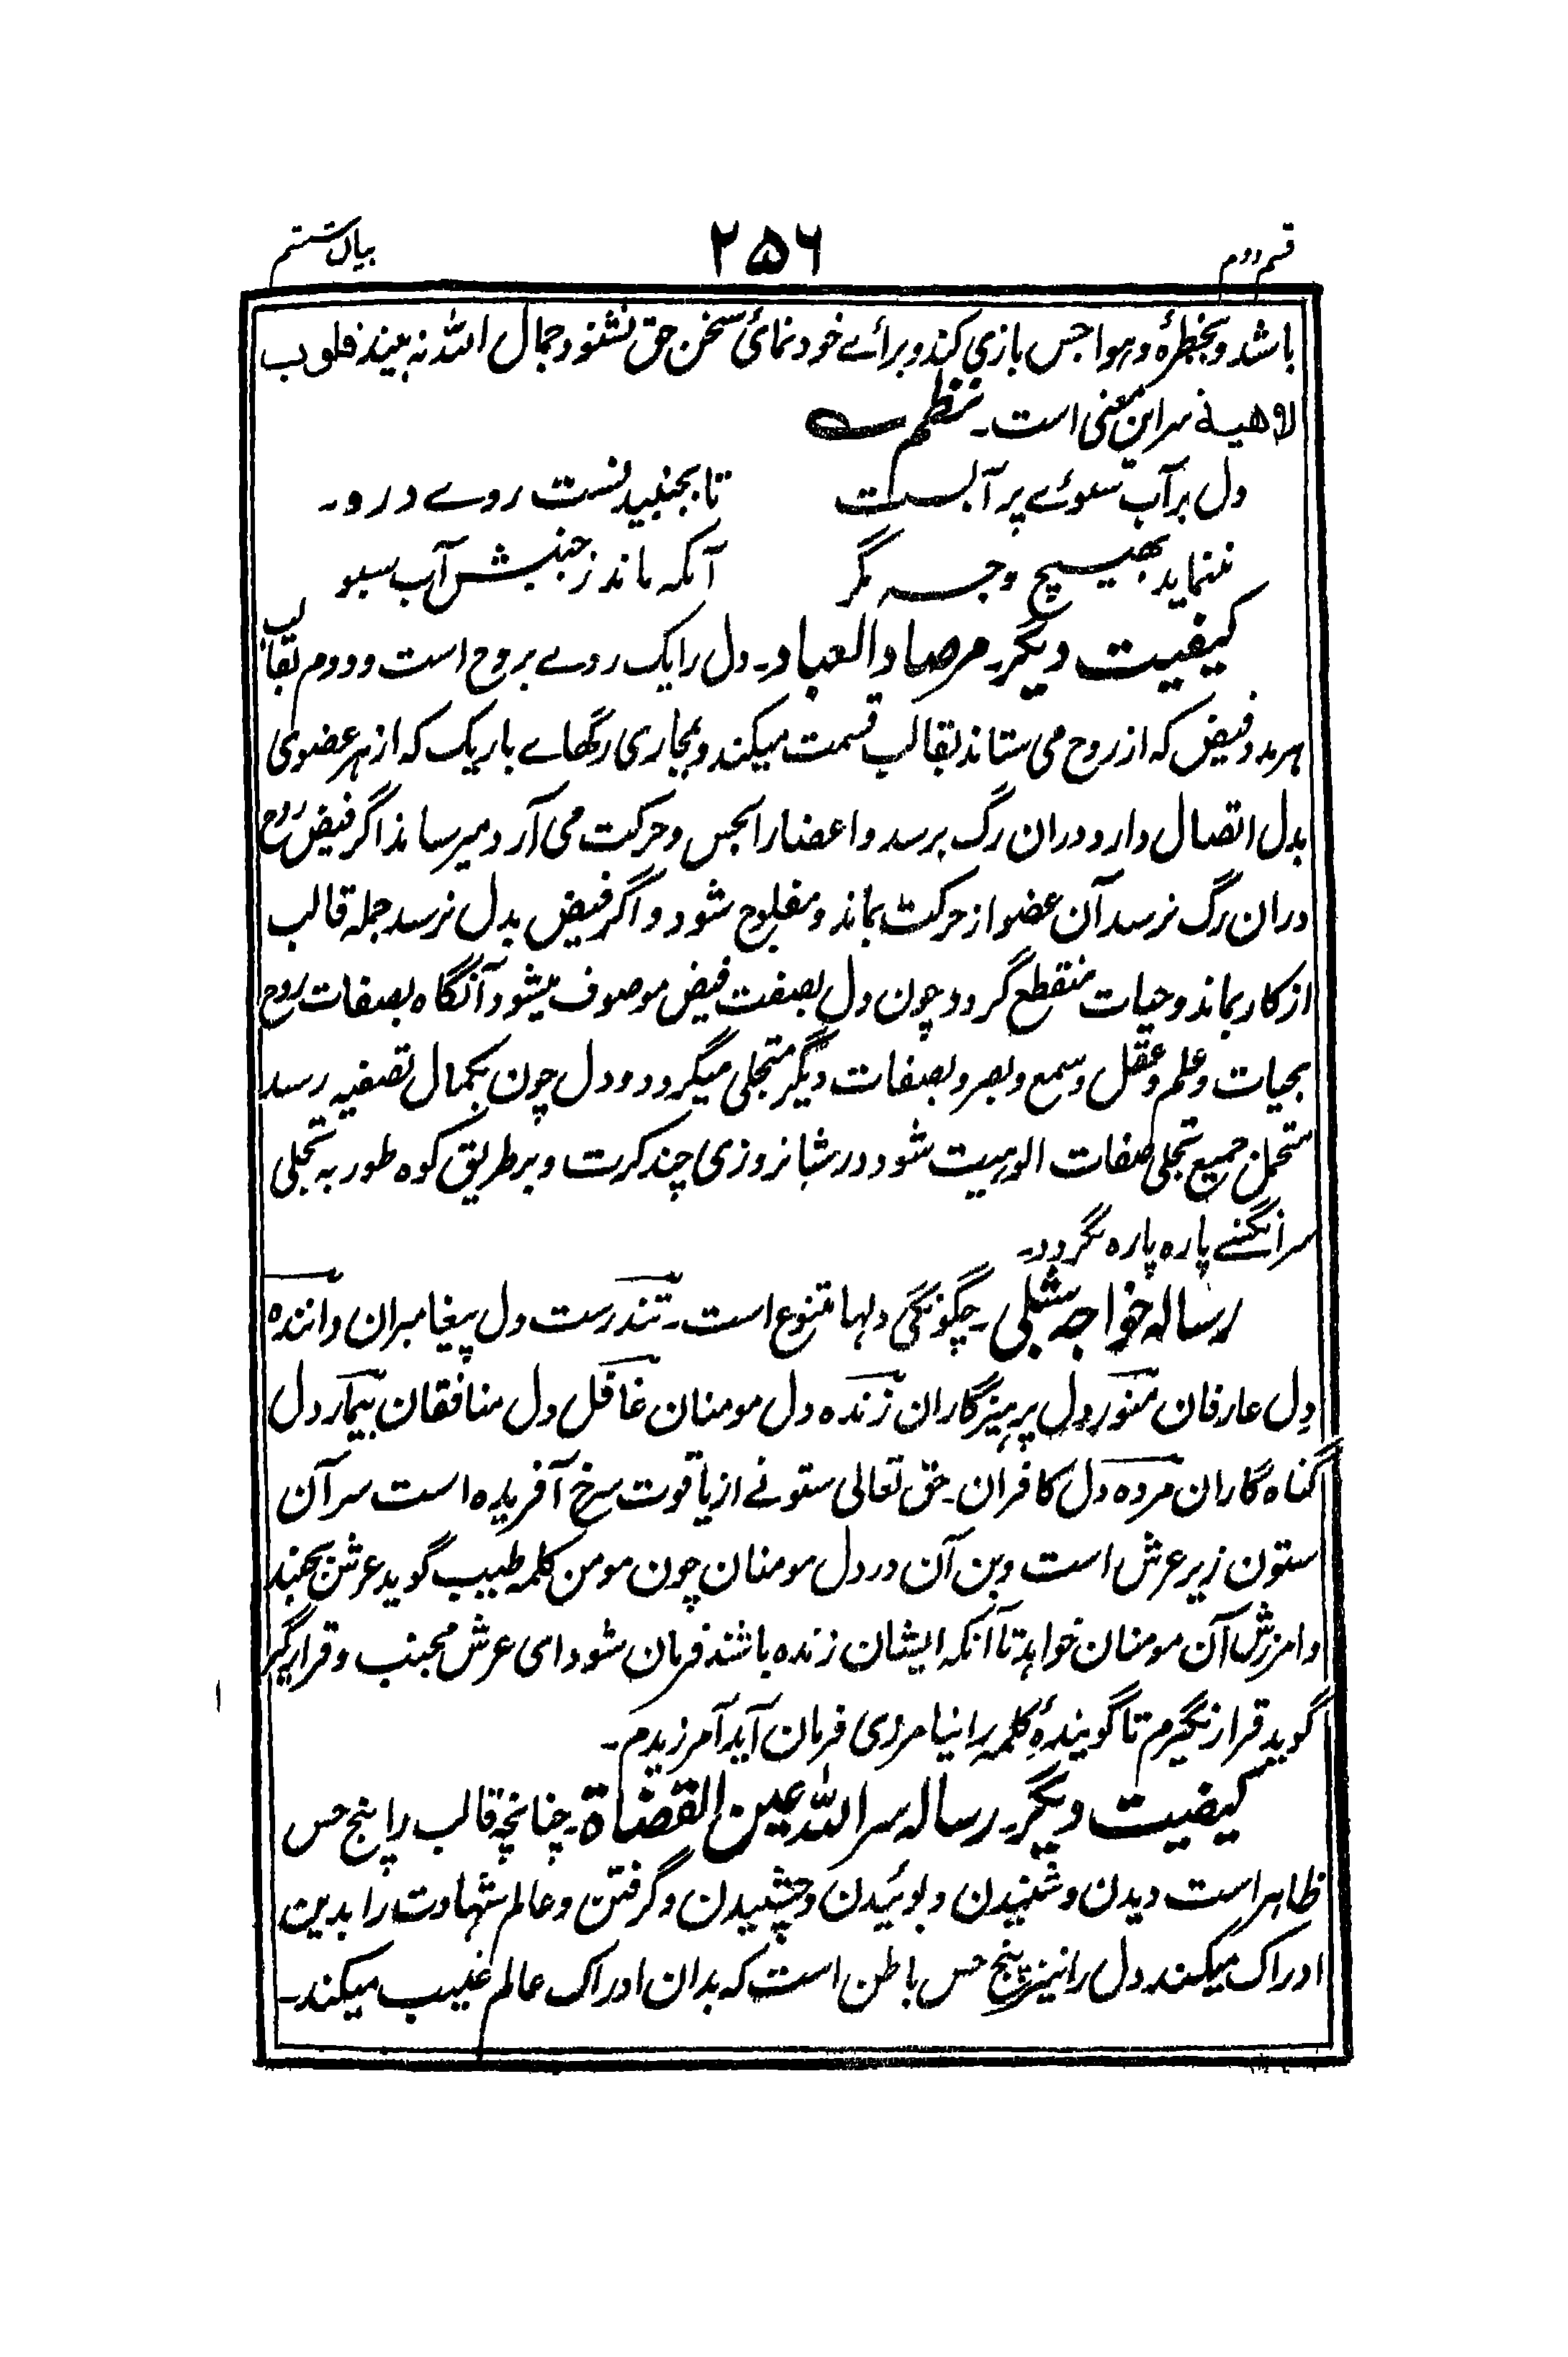 قسم دوم ۲۵۶ بیان ششم
باشد و بخطرۂ و ہواجس بازی کند و برائے خود نمائی سخن حق نشنود جمال اللہ نہ بیند قلوب
لاھیۃ سر این معنی است۔ نظم
دل برآب سبوئے پر آبست تا بجنبید نست روے درو۔
ننماید بھیچ وجہ مگر آنکہ ماند ز جنبش آب سبو
کیفیت دیگر۔ مرصاد العباد۔ دل را یک روے بروح است و دوم بقالب
ہر مدد فیض کہ از روح می ستاند بقالب قسمت میکند و بمجاری رگھاے باریک کہ از ہر عضوی
بدل اتصال دارد دران رگ برسد و اعضا را بحس و حرکت می آرد میرساند اگر فیض روح
دران رگ نرسد آن عضو از حرکت بماند و مفلوج شود و اگر فیض بدل نرسد جملہ قالب
از کار بماند و حیات منقطع گردد چون دل بصفت فیض موصوف میشود آنگاہ بصفات روح
بحیات و علم و عقل و سمع و بصر و بصفات دیگر متجلی میگردد و دل چون بکمال تصفیہ رسد
متحمل جمیع تجلی صفات الوہیت شود در شبانروزی چند کرت و بر طریق کوہ طور بہ تجلی
سرانگشتے پارہ پارہ نگردد۔
رسالہ خواجہ شبلی۔ چگونگی دلہا متنوع است۔ تندرست دل پیغامبران دانندہ
دل عارفان منور دل پرہیزگاران زندہ دل مومنان غافل دل منافقان بیمار دل
گناہ گاران مردہ دل کافران۔ حق تعالی ستونے از یاقوت سرخ آفریدہ است سر آن
ستون زیر عرش است و بن آن در دل مومنان چون مومن کلمہ طیب گوید عرش بجنبد
و امرزش آن مومنان خواہد تا آنکہ ایشان زندہ باشند فرمان شود ای عرش مجنب و قرار گیر
گوید قرار نگیرم تا گویندۂ کلمہ را نیامرزی فرمان آید آمرزیدم۔
کیفیت دیگر۔ رسالہ سر اللہ عین القضاة۔ چنانچہ قالب را پنج حس
ظاہر است دیدن و شنیدن و بوئیدن و چشیدن و گرفتن و عالم شہادت را بدین
ادراک میکند دل را نیز پنج حس باطن است کہ بدان ادراک عالم غیب میکند۔